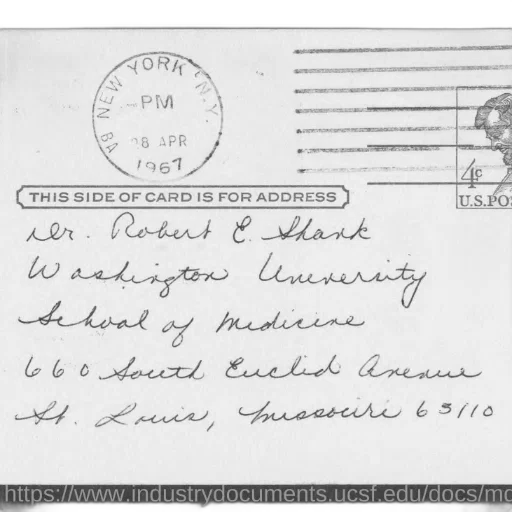 NEW YORK N.Y.
PM
28 APR
1967
4¢
U.S.POS
THIS SIDE OF CARD IS FOR ADDRESS
Dr. Robert E. Shank
Washington University
School of Medicine
660 South Euclid Avenue
St. Louis, Missouri 63110
https://www.industrydocuments.ucsf.edu/docs/m